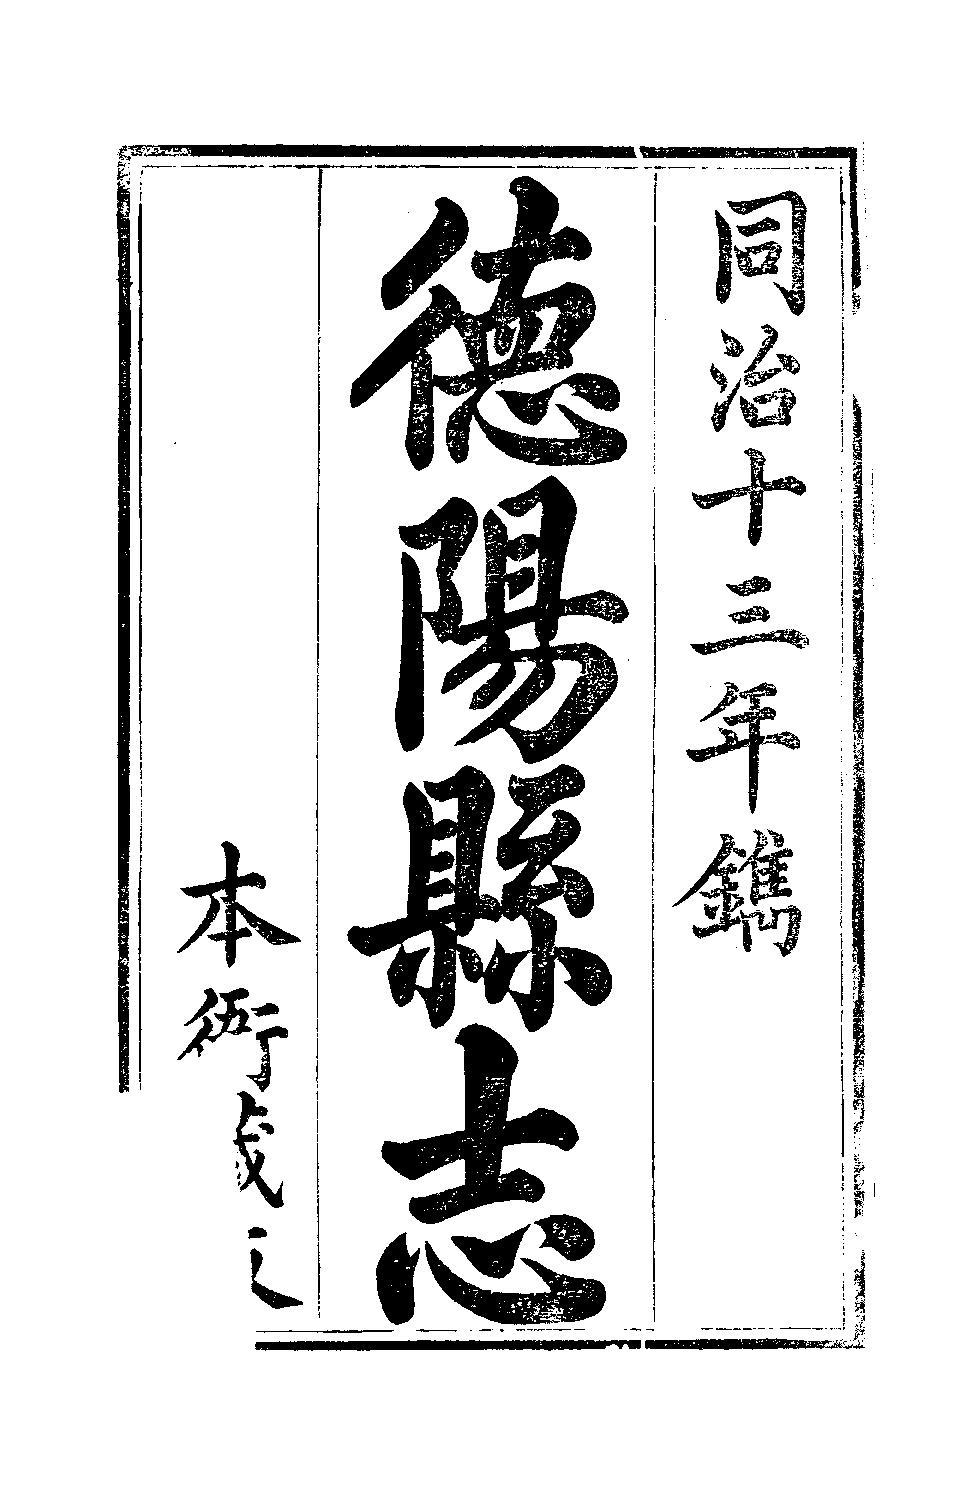 同治十三年鐫
德陽縣志
本衙藏板